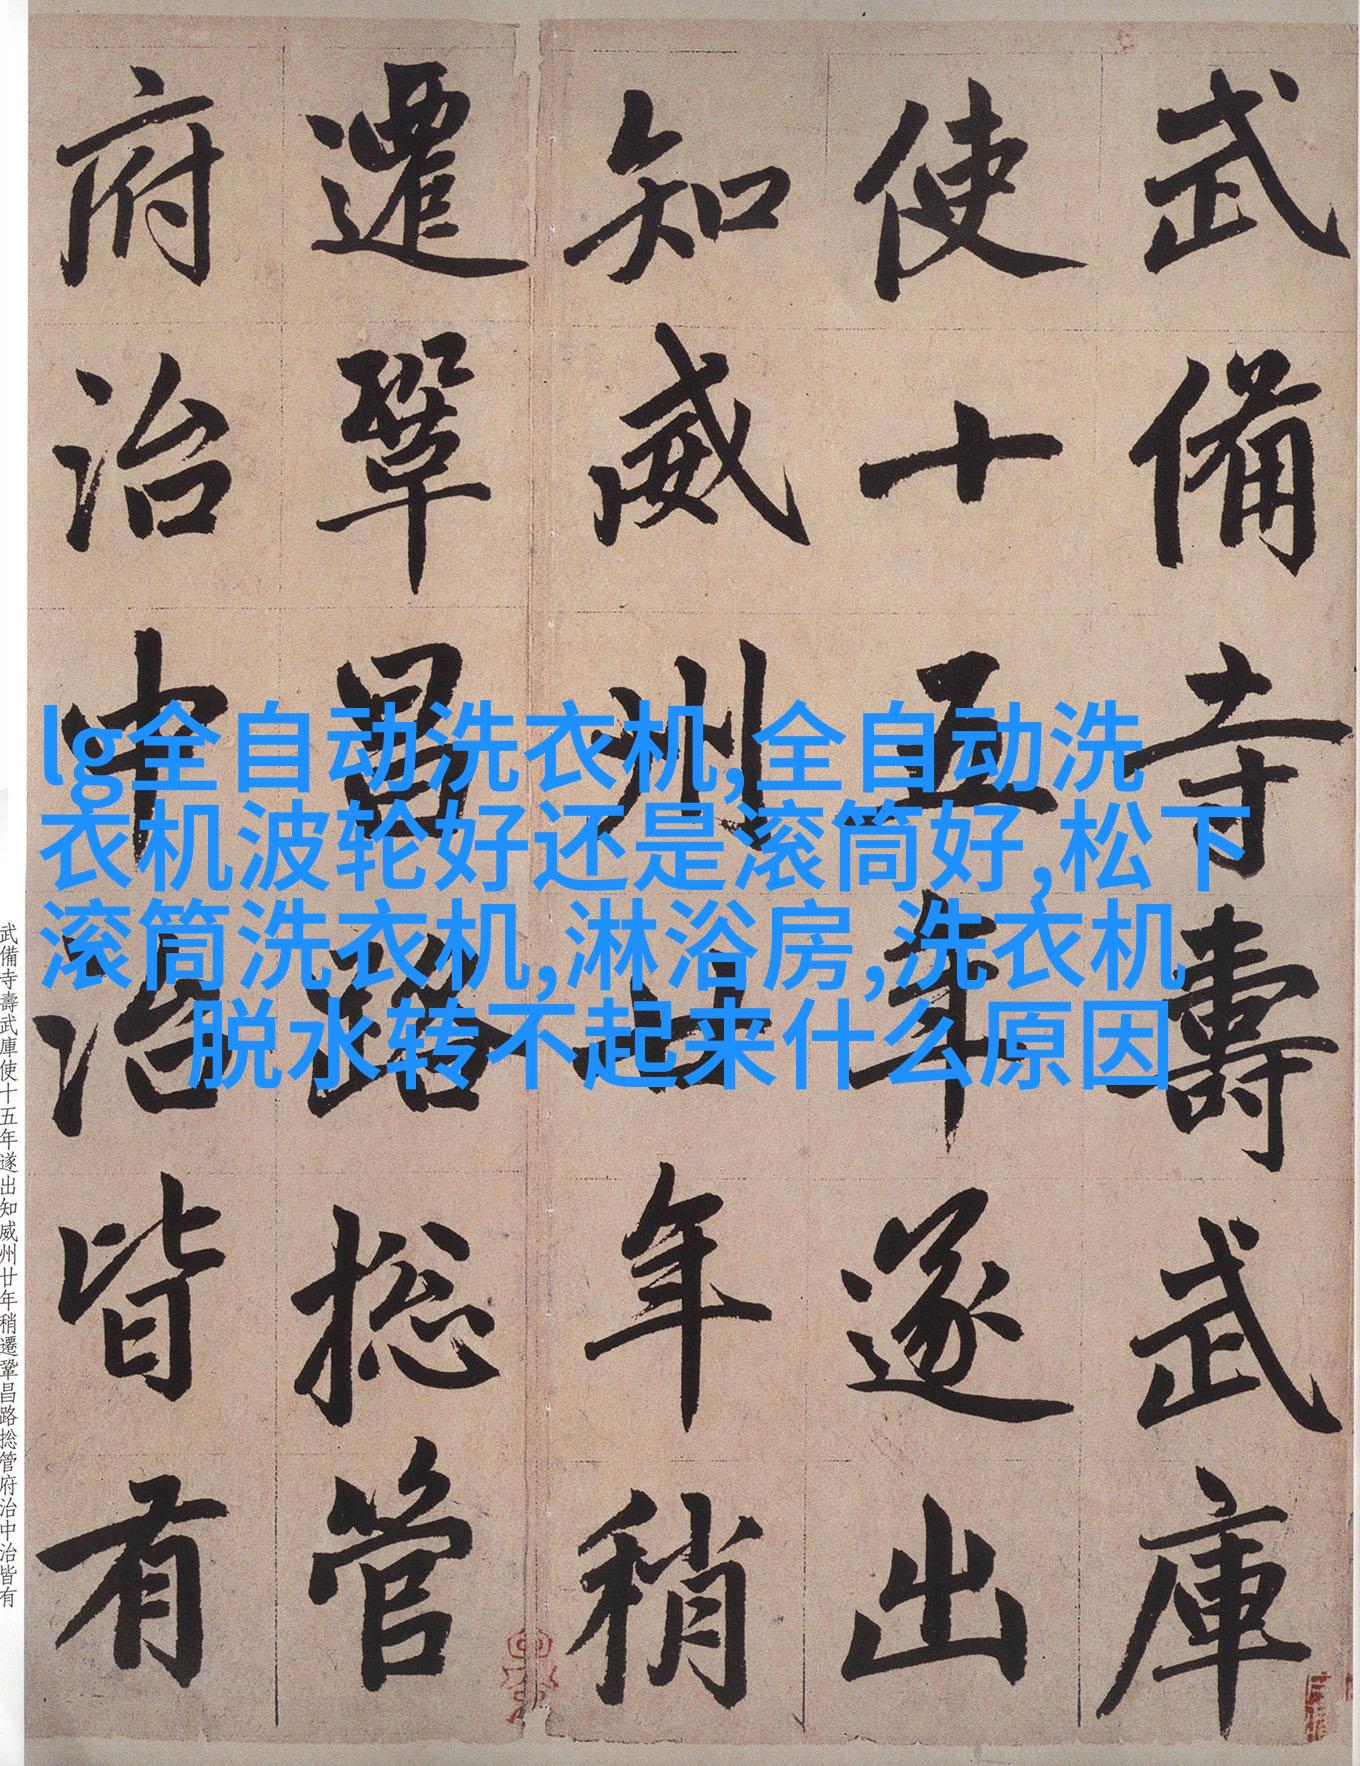 武備寺壽武庫
使十五年遂出
知威州廿年稍
遷鞏昌路捴管
府治中治皆有
lg全自动洗衣机,全自动洗
衣机波轮好还是滚筒好,松下
滚筒洗衣机,淋浴房,洗衣机
脱水转不起来什么原因
武備寺壽武庫使十五年遂出知威州廿年稍遷鞏昌路捴管府治中治皆有